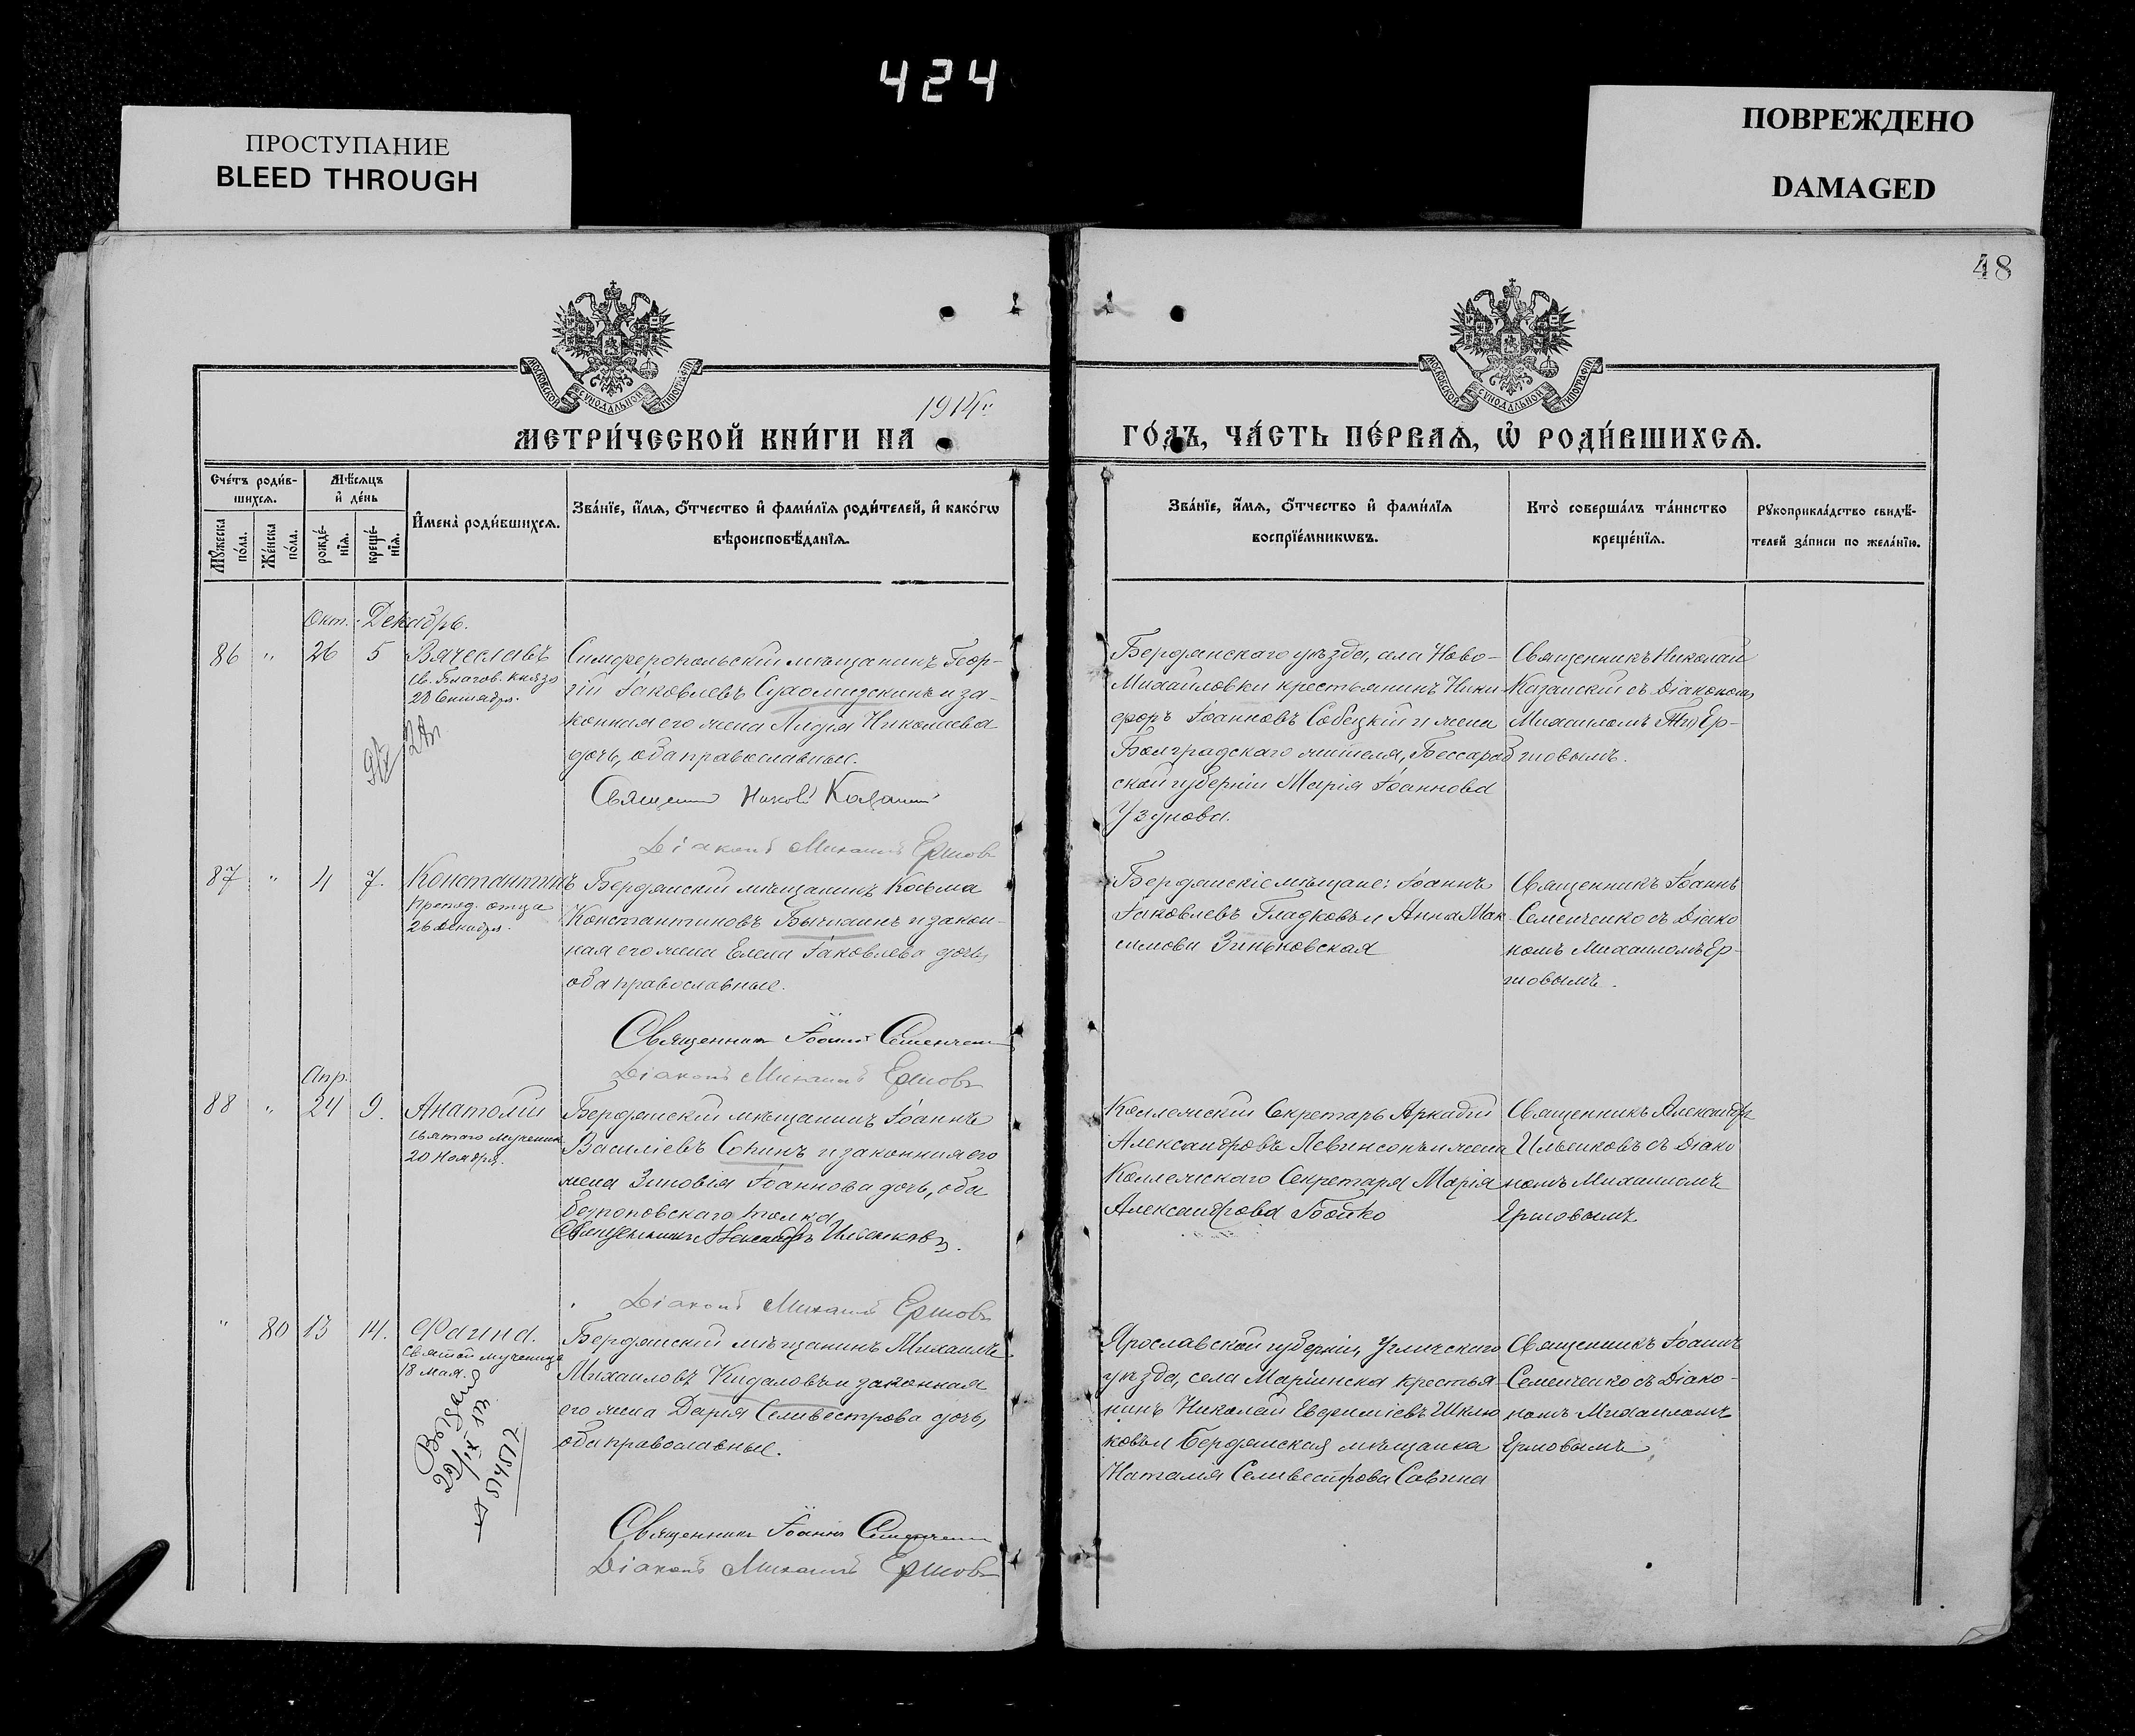 424
ПРОСТУПАНИЕ
BLEED THROUGH
ПОВРЕЖДЕНО
DAMAGED
48
МОСКОВСКОЙ СѴНОДАЛЬНОЙ ТИПОГРАФІИ
МОСКОВСКОЙ СѴНОДАЛЬНОЙ ТИПОГРАФІИ
1914
МЕТРИ́ЧЕСКОЙ КНИ́ГИ НА
ГО́ДЪ, ЧА́СТЬ ПЕ́РВАѦ, Ѡ҆ РОДИ́ВШИХСѦ.
Сче́тъ роди́в-
шихсѧ.
Мѣ́сѧцъ
и҆ де́нь
Мꙋ́жеска
по́ла.
Же́нска
по́ла.
рожде́-
нїѧ.
креще́-
нїѧ.
И҆мена̀ роди́вшихсѧ.
Зва́нїе, и҆́мѧ, ѻ҆́тчество и҆ фами́лїѧ роди́телей, и҆ како́гѡ
вѣроисповѣ́данїѧ.
Зва́нїе, и҆́мѧ, ѻ҆́тчество и҆ фами́лїѧ
воспрїе́мникѡвъ.
Кто̀ соверша́лъ та́инство
креще́нїѧ.
Рꙋкоприкла́дство свидѣ́-
телей за́писи по жела́нїю.
Окт. Декабрь.
86 " 26 5 Вячеславъ
Св. Благов. князя
28 Сентября.
Симферопольскій мѣщанинъ Геор-
гій Іаковлевъ и за-
конная его жена Лидія Николаева
дочь, оба православные.
Священникъ Казанскій
Діаконъ Михаилъ Ершовъ
Бердянскаго уѣзда, села Ново-
Михайловки крестьянинъ Ники-
форъ Іоанновъ Собецкій и жена
Болградскаго жителя, Бессараб
ской губерніи Марія Іоаннова
Узунова.
Священникъ Николай
Казанскій съ Діакономъ
Михаиломъ Ер-
шовымъ.
87 " 4 7. Константинъ
Препод. отца
26 Декабря.
Бердянскій мѣщанинъ Косьма
Константиновъ и закон-
ная его жена Елена Іаковлева дочь,
оба православные.
Священникъ Іоаннъ Семенченко
Діаконъ Михаилъ Ершовъ
Бердянскіе мѣщане: Іоаннъ
Іаковлевъ Гладковъ и Анна Мак
симова Зиньковская
Священникъ Іоаннъ
Семенченко съ Діако
номъ Михаиломъ Ер-
шовымъ.
Апр.
88 " 24 9. Анатолій
Святого мученика
20 Ноября.
Бердянскій мѣщанинъ Іоаннъ
Василіевъ Сопинъ и законная его
жена Зиновія Іоаннова дочь, оба
безпоповскаго толка
Священникъ Александръ Ильенковъ.
Діаконъ Михаилъ Ершовъ
Коллежскій Секретарь Аркадій
Александровъ Левинсонъ и жена
Коллежскаго Секретаря Марія
Александрова Бойко
Священникъ Александръ
Ильенковъ съ Діако
номъ Михаиломъ
Ершовымъ
" 80 13 14. Фаина.
Святой мученицы
18 Мая.
Выдано
Бердянскій мѣщанинъ Михаилъ
Михаиловъ Кидаловъ и законная
его жена Дарія Селивестрова дочь,
оба православные.
Священникъ Іоаннъ Семенченко
Діаконъ Михаилъ Ершовъ
Ярославской губерніи, Угличскаго
уѣзда, села Маріинска крестья-
нинъ Николай Евфиміевъ Шклю
ковъ и Бердянская мѣщанка
Наталія Селивестрова Савина
Священникъ Іоаннъ
Семенченко съ Діако-
номъ Михаиломъ
Ершовымъ